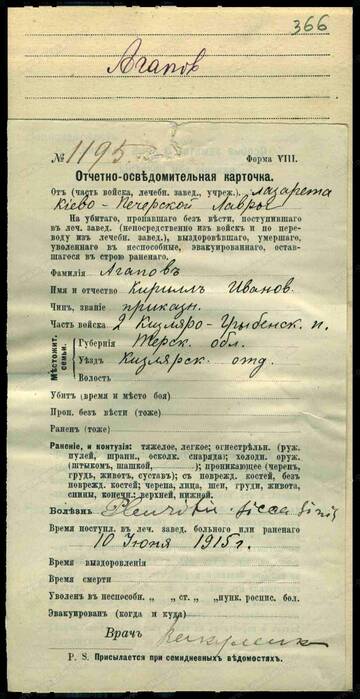 366
Агапов
№ 1195 Форма VIII.
Отчетно-освѣдомительная карточка.
Отъ (часть войска, лечебн. завед., учреж.) лазарета
Кіево-Печерской Лавры
На убитаго, пропавшаго безъ вѣсти, поступившаго
въ леч. завед. (непосредственно изъ войскъ и по пере-
воду изъ лечебн. завед.), выздоровѣвшаго, умершаго,
уволеннаго въ неспособные, эвакуированнаго, остав-
шагося въ строю раненаго.
Фамилія Агаповъ
Имя и отчество Кириллъ Иванов.
Чинъ, званіе приказн.
Часть войска 2 Кизляро-Гребенск. п.
Мѣстожит. семьи.
Губернія Терск. обл.
Уѣздъ Кизлярск. отд.
Волость
Убитъ (время и мѣсто боя)
Проп. безъ вѣсти (тоже)
Раненъ (тоже)
Раненіе, и контузія: тяжелое, легкое; огнестрѣльн. (руж.
пулей, шрапн., осколк. снаряда); холодн. оруж.
(штыкомъ, шашкой,); проникающее (черепъ,
грудь, животъ, суставъ); съ поврежд. костей, безъ
поврежд. костей; черепа, лица, шеи, груди, живота,
спины, конечн.: верхней, нижней.
Болѣзнь sicca
Время поступл. въ леч. завед. больного или раненаго
10 Іюня 1915 г.
Время выздоровленія
Время смерти
Уволенъ въ неспособн. „ „ ст. „ „ пунк. роспис. бол.
Эвакуированъ (когда и куда)
Врачъ
P. S. Присылается при семидневныхъ вѣдомостяхъ.